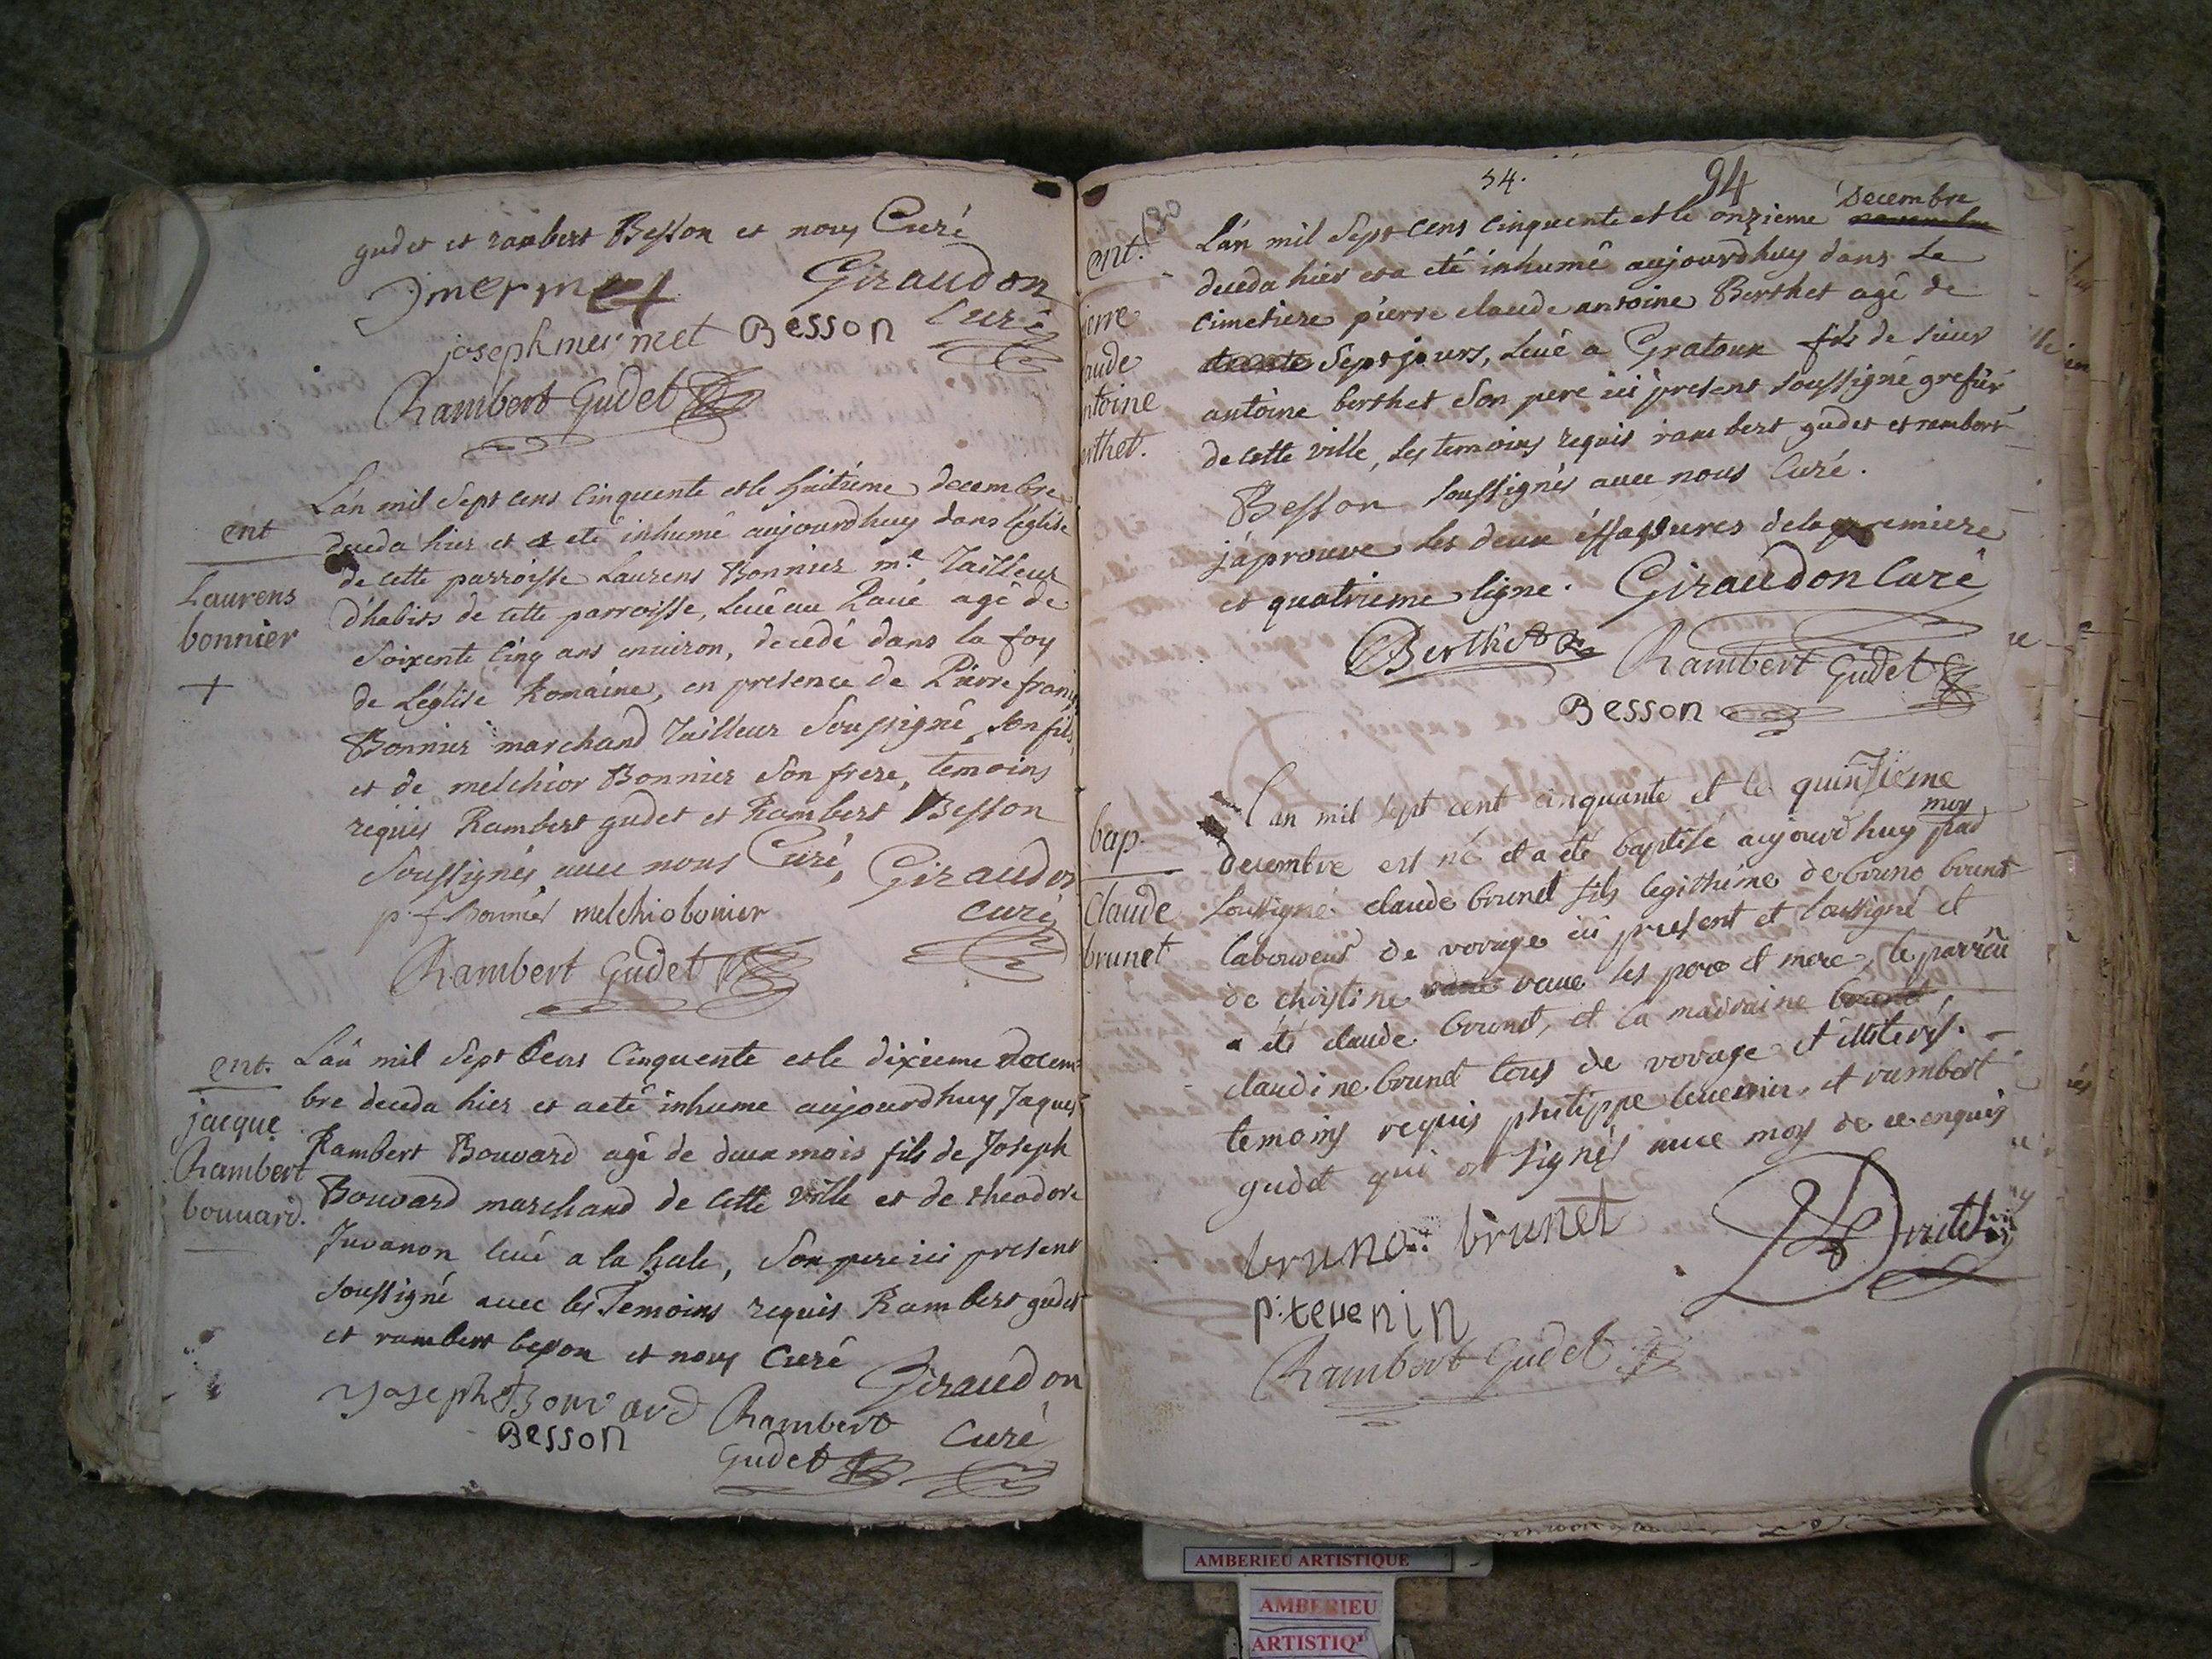 gudet et rambert Besson et nous Curé
Jmermet Giraudon
josephmermet Besson Curé
Rambert Gudet
ent
Laurens
bonnier
+
L'an mil Sept cens Cinquente et le huitieme decembre
deceda hier et a eté inhumé aujourdhuy dans l'église
de cette parroisse Laurens Bonnier me. Tailleur
d'habits de cette parroisse, levé au Pavé agé de
Soixente Cinq ans environ, decedé dans la foy
de L'église Romaine, en presence de Pierre françs
Bonnier marchand Tailleur Soussigné, Son fils
et de melchior Bonnier Son frere, temoins
requis Rambert gudet et Rambert Besson
Soussignés avec nous Curé, Giraudon
p. f Bonnier melchiobonier curé
Rambert Gudet
ent.
jacque
Rambert
bouuard.
L'an mil Sept Cens Cinquente et le dixieme decem-
bre deceda hier et a eté inhume aujourdhuy Jaques
Rambert Bouvard agé de deux mois fils de Joseph
Bouvard marchand de Cette ville et de theodore
Juvanon levé a la hale, Son pere ici present
soussigné avec les Temoins requis Rambert gudet
et rambert besson et nous Curé
Joseph Bouvard Rambert Giraudon
Besson Gudet Curé
54. 94
130
ent.
ierre
aude
ntoine
erthet.
Decembre
L'an mil Sept cens Cinquente et le onzieme novembre
deceda hier et a eté inhumé aujourdhuy dans Le
Cimetiere pierre claude antoine Berthet agé de
trente Sept jours, levé a Gratoux fils de sieur
antoine berthet Son pere ici present soussigné grefier
de cette ville, les temoins requis rambert gudet et rambert
Besson soussignés avec nous Curé.
j'aprouve les deux éffassures de la premiere
et quatrieme ligne. Giraudon Curé
Berthet Rambert Gudet
Besson
bap.
Claude
brunet
L'an mil sept cent cinquante et le quinzieme
decembre est né et a eté baptisé aujourdhuy par moy
soussigné claude brunet fils legithime de bruno brunet
laboureur de vorage ici present et soussigné et
de christine vaue les pere et mere, le parrain
a été claude brunet, et la marraine brunet,
claudine brunet tous de vorage et illiterés.
temoins requis philippe tevenin et rambert
gudet qui ont signés avec moy de ce enquis
bruno brunet
p: tevenin
Rambert Gudet
AMBERIEU ARTISTIQUE
AMBERIEU
ARTISTIQ